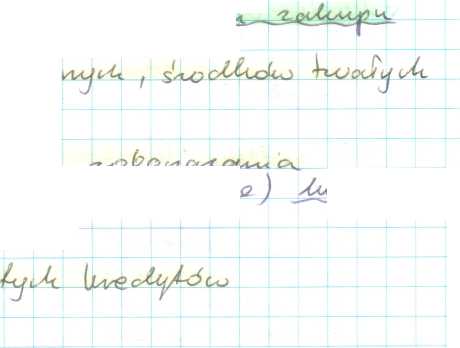 zakupu
nych, środków trwałych
zobowiązania
e)
tych kredytów